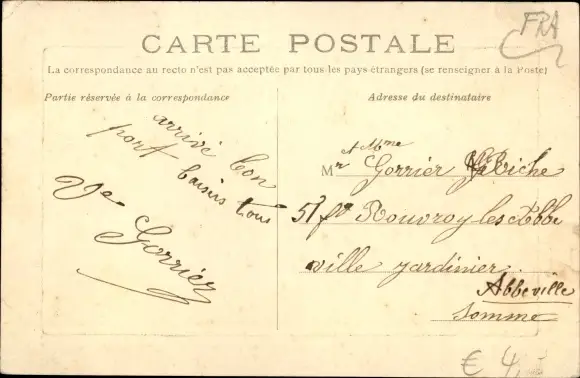 FRA
CARTE POSTALE
La correspondance au recto n'est pas acceptée par tous les pays étrangers (se renseigner à la Poste)
Partie réservée à la correspondance
Adresse du destinataire
arrivé bon
port
baisers tous
Ve Gorrier
Mr et Mme Gorrier
51 fg Rouvroy les Abbe
ville jardinier
Abbeville
Somme
€ 4,-